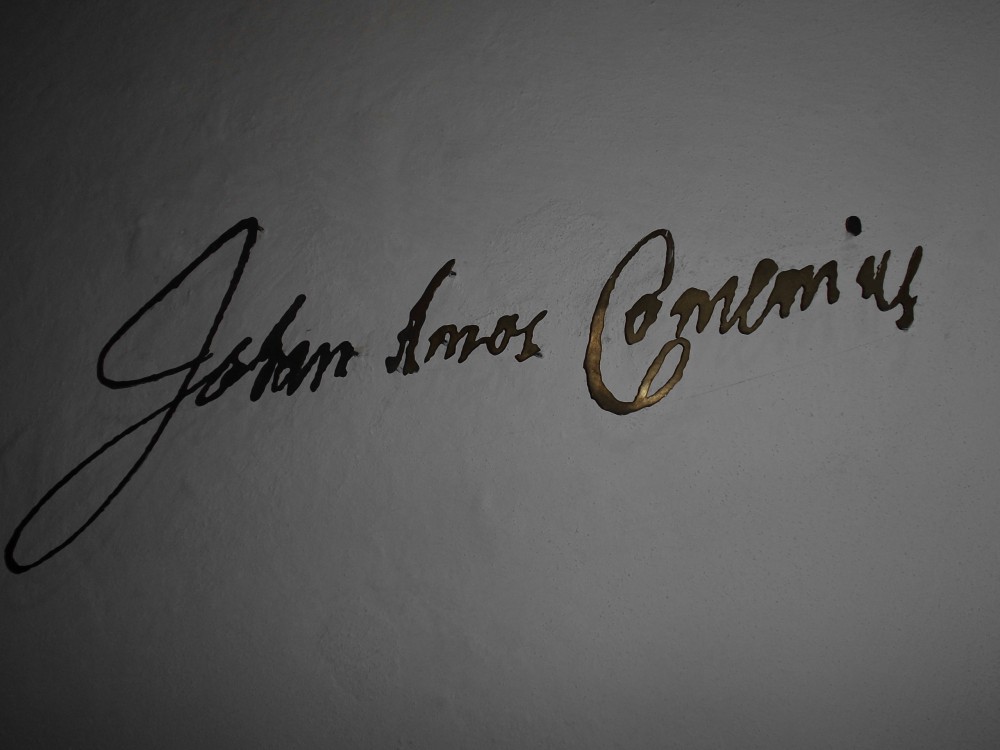 Johan Amos Comenius